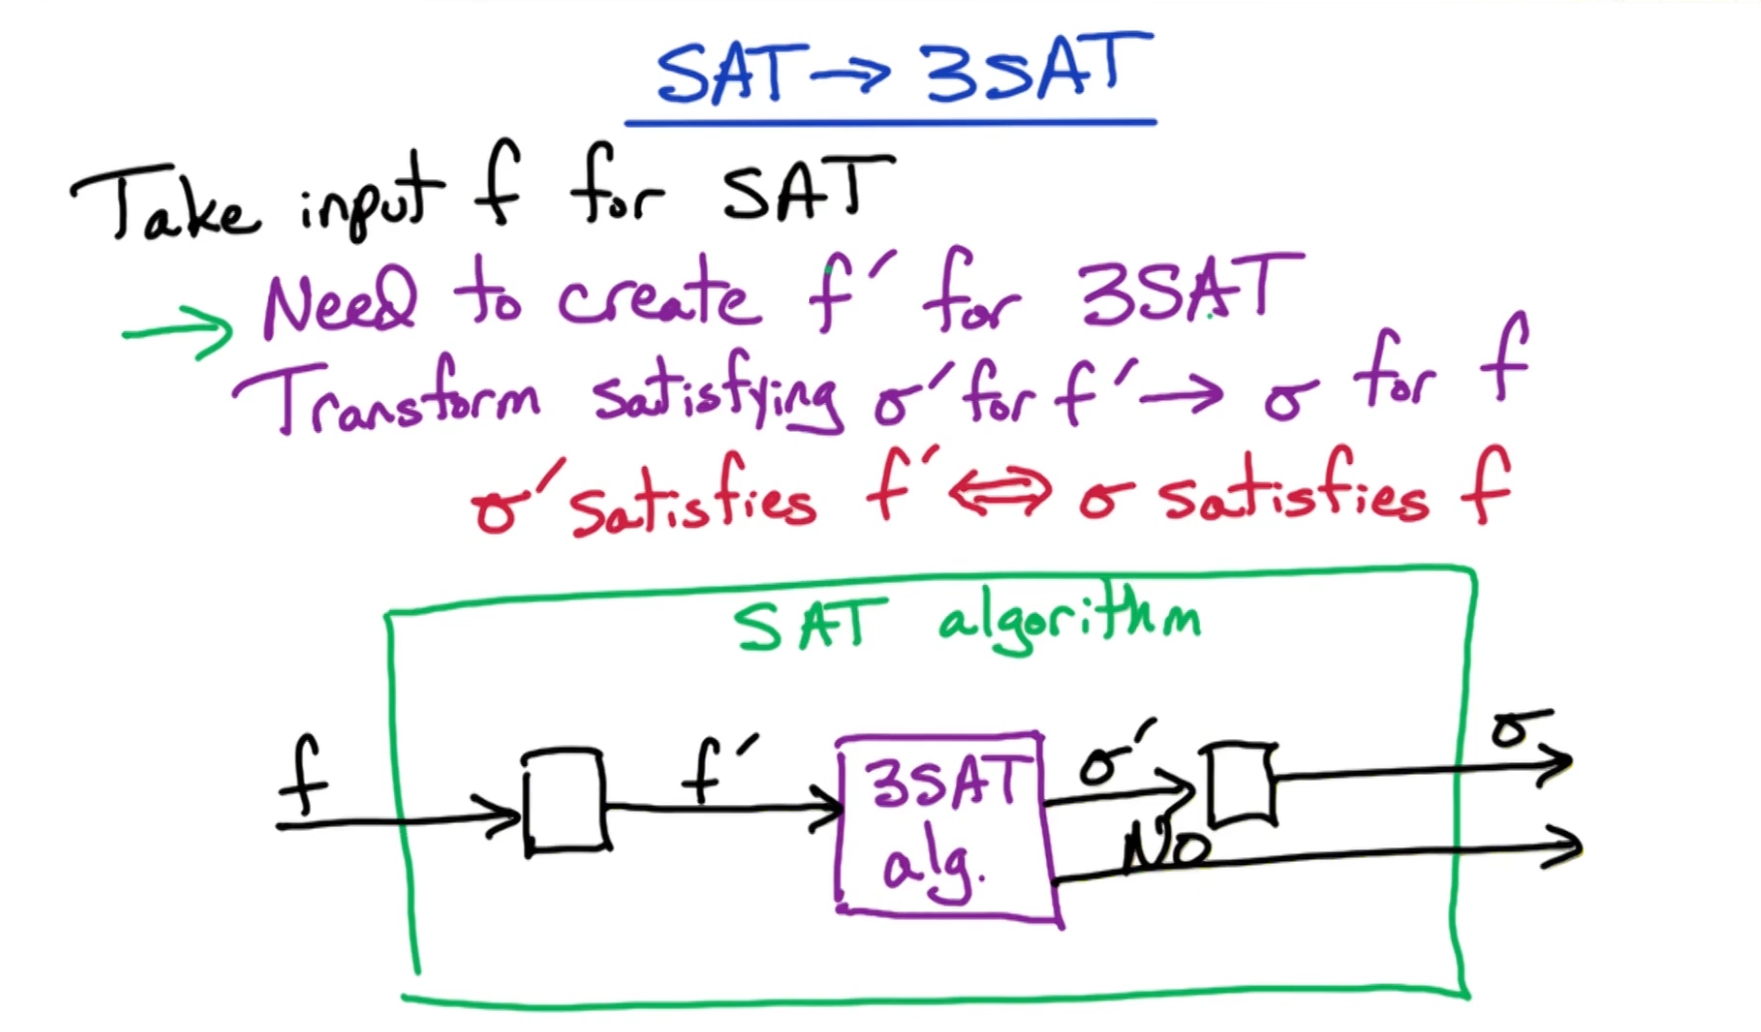 SAT → 3SAT
Take input f for SAT
→ Need to create f′ for 3SAT
Transform satisfying σ′ for f′ → σ for f
σ′ satisfies f′ ⟺ σ satisfies f
SAT algorithm
f
f′
3SAT
alg.
σ′
No
σ